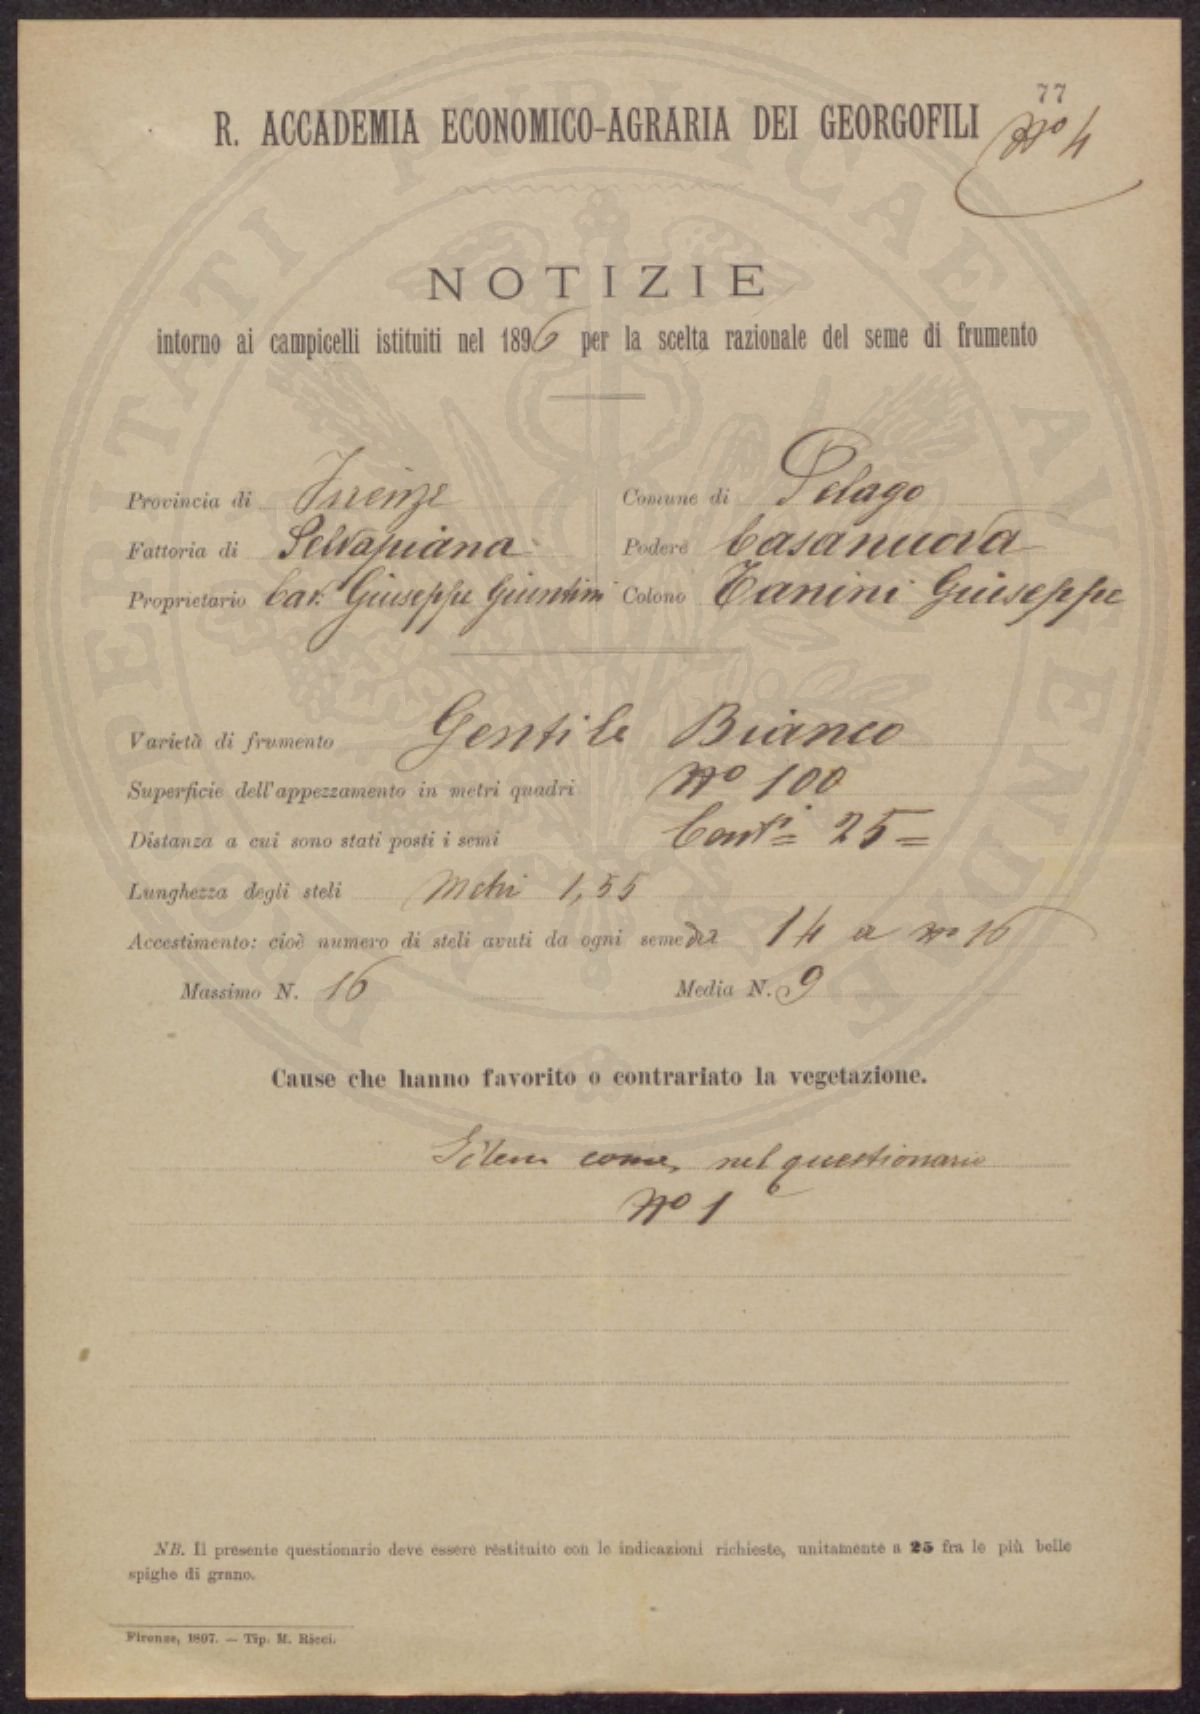 77
R. ACCADEMIA ECONOMICO-AGRARIA DEI GEORGOFILI
No 4
NOTIZIE
intorno ai campicelli istituiti nel 1896 per la scelta razionale del seme di frumento
Provincia di Firenze Comune di Pelago
Fattoria di Selvapiana Podere Casanuova
Proprietario Cav. Giuseppe Giuntini Colono Tanini Giuseppe
Varietà di frumento Gentile Bianco
Superficie dell'appezzamento in metri quadri No 100
Distanza a cui sono stati posti i semi Centi = 25 =
Lunghezza degli steli Metri 1,55
Accestimento: cioè numero di steli avuti da ogni seme da 14 a no 16
Massimo N. 16 Media N. 9
Cause che hanno favorito o contrariato la vegetazione.
Idem come nel questionario
No 1
NB. Il presente questionario deve essere restituito con le indicazioni richieste, unitamente a 25 fra le più belle
spighe di grano.
Firenze, 1897. — Tip. M. Ricci.
PROSPERITATI PUBLICAE AUGENDAE